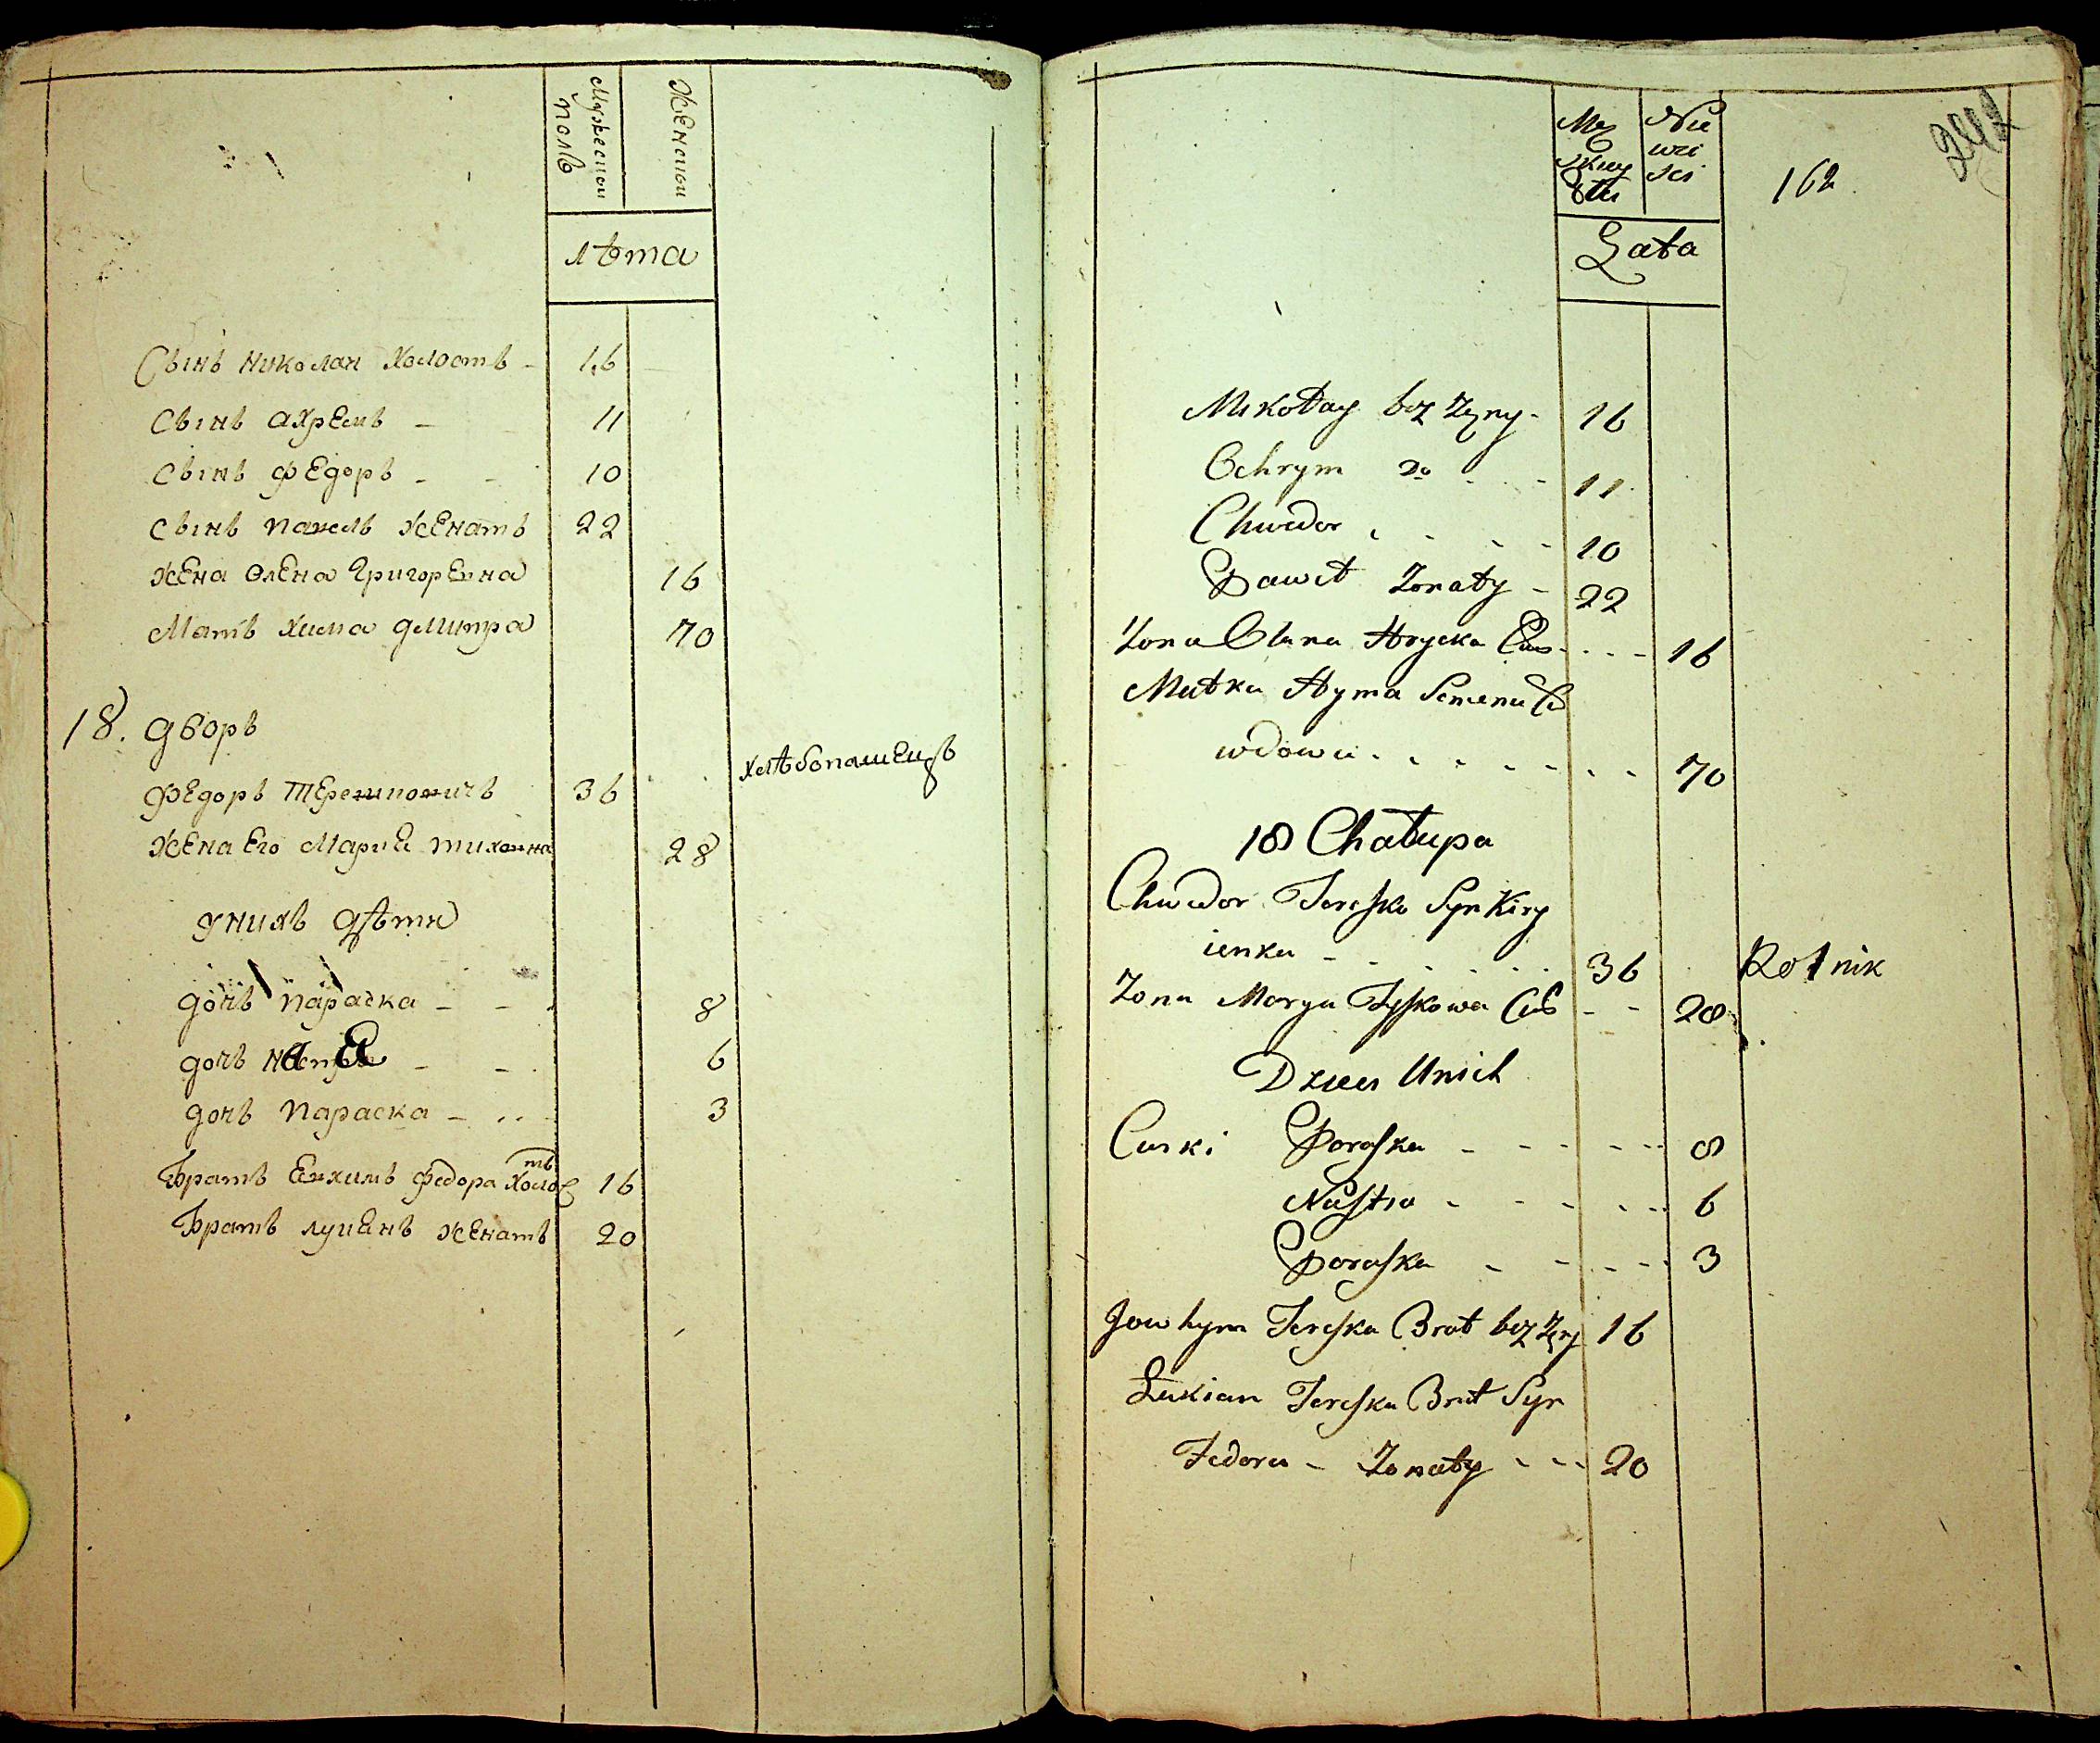 Мужескои
полъ
Женскои
лѣта
Сынъ николаи Холостъ - 16
Сынъ ахремъ - 11
Сынъ федоръ - - 10
Сынъ павелъ женатъ 22
жена олена григоревна 16
Мать хима дмитра 70
18. дворъ
федоръ терешковичъ 36 хлѣбопашецъ
жена его Мариа тиховна 28
у нихъ дѣти
дочь параска - - 8
дочь - - 6
дочь параска - 3
братъ евхимъ федора холостъ 16
братъ луцанъ женатъ 20
162
Lata
Mikołay bez żęny - 16
Ochrym do - - 11
Chwedor - - - 10
Paweł Żonaty - 22
Żona Olana Hrycka Cur - - - 16
Matka Hyma Semena C
wdowa - - - - - - - 70
18 Chałupa
Chwedor Tereszko Syn Kiry
ienka - - - - - 36 Rolnik
Żona Marya Tyszkowa Cur - - 28
Dzieci U nich
Curki Paraszka - - - - - 8
Nastia - - - - - 6
Paraszka - - - - - 3
Jowhym Tereszka Brat bez żęny 16
Łukian Tereszka Brat Syn
Fedora - Żonaty - - - 20